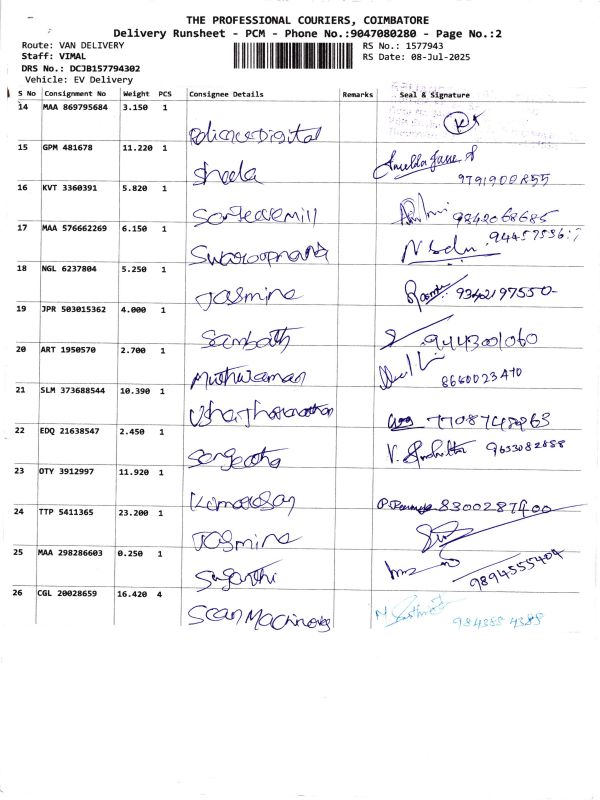 THE PROFESSIONAL COURIERS, COIMBATORE
Delivery Runsheet - PCM - Phone No.:9047080280 - Page No.:2
Route: VAN DELIVERY
RS No.: 1577943
Staff: VIMAL
RS Date: 08-Jul-2025
DRS No.: DCJB157794302
Vehicle: EV Delivery
S No Consignment No Weight PCS Consignee Details Remarks Seal & Signature
14 MAA 869795684 3.150 1
15 GPM 481678 11.220 1 Sheela 9791900855
16 KVT 3360391 5.820 1 9842068685
17 MAA 576662269 6.150 1
18 NGL 6237804 5.250 1 Jasmine 9342197550
19 JPR 503015362 4.000 1 Sambath 9443001060
20 ART 1950570 2.700 1 Muthuraman 8660023470
21 SLM 373688544 10.390 1
22 EDQ 21638547 2.450 1 Sangeetha 9633082888
23 OTY 3912997 11.920 1 8300287400
24 TTP 5411365 23.200 1 Jasmine
25 MAA 298286603 0.250 1 Suganthi 9894555404
26 CGL 20028659 16.420 4